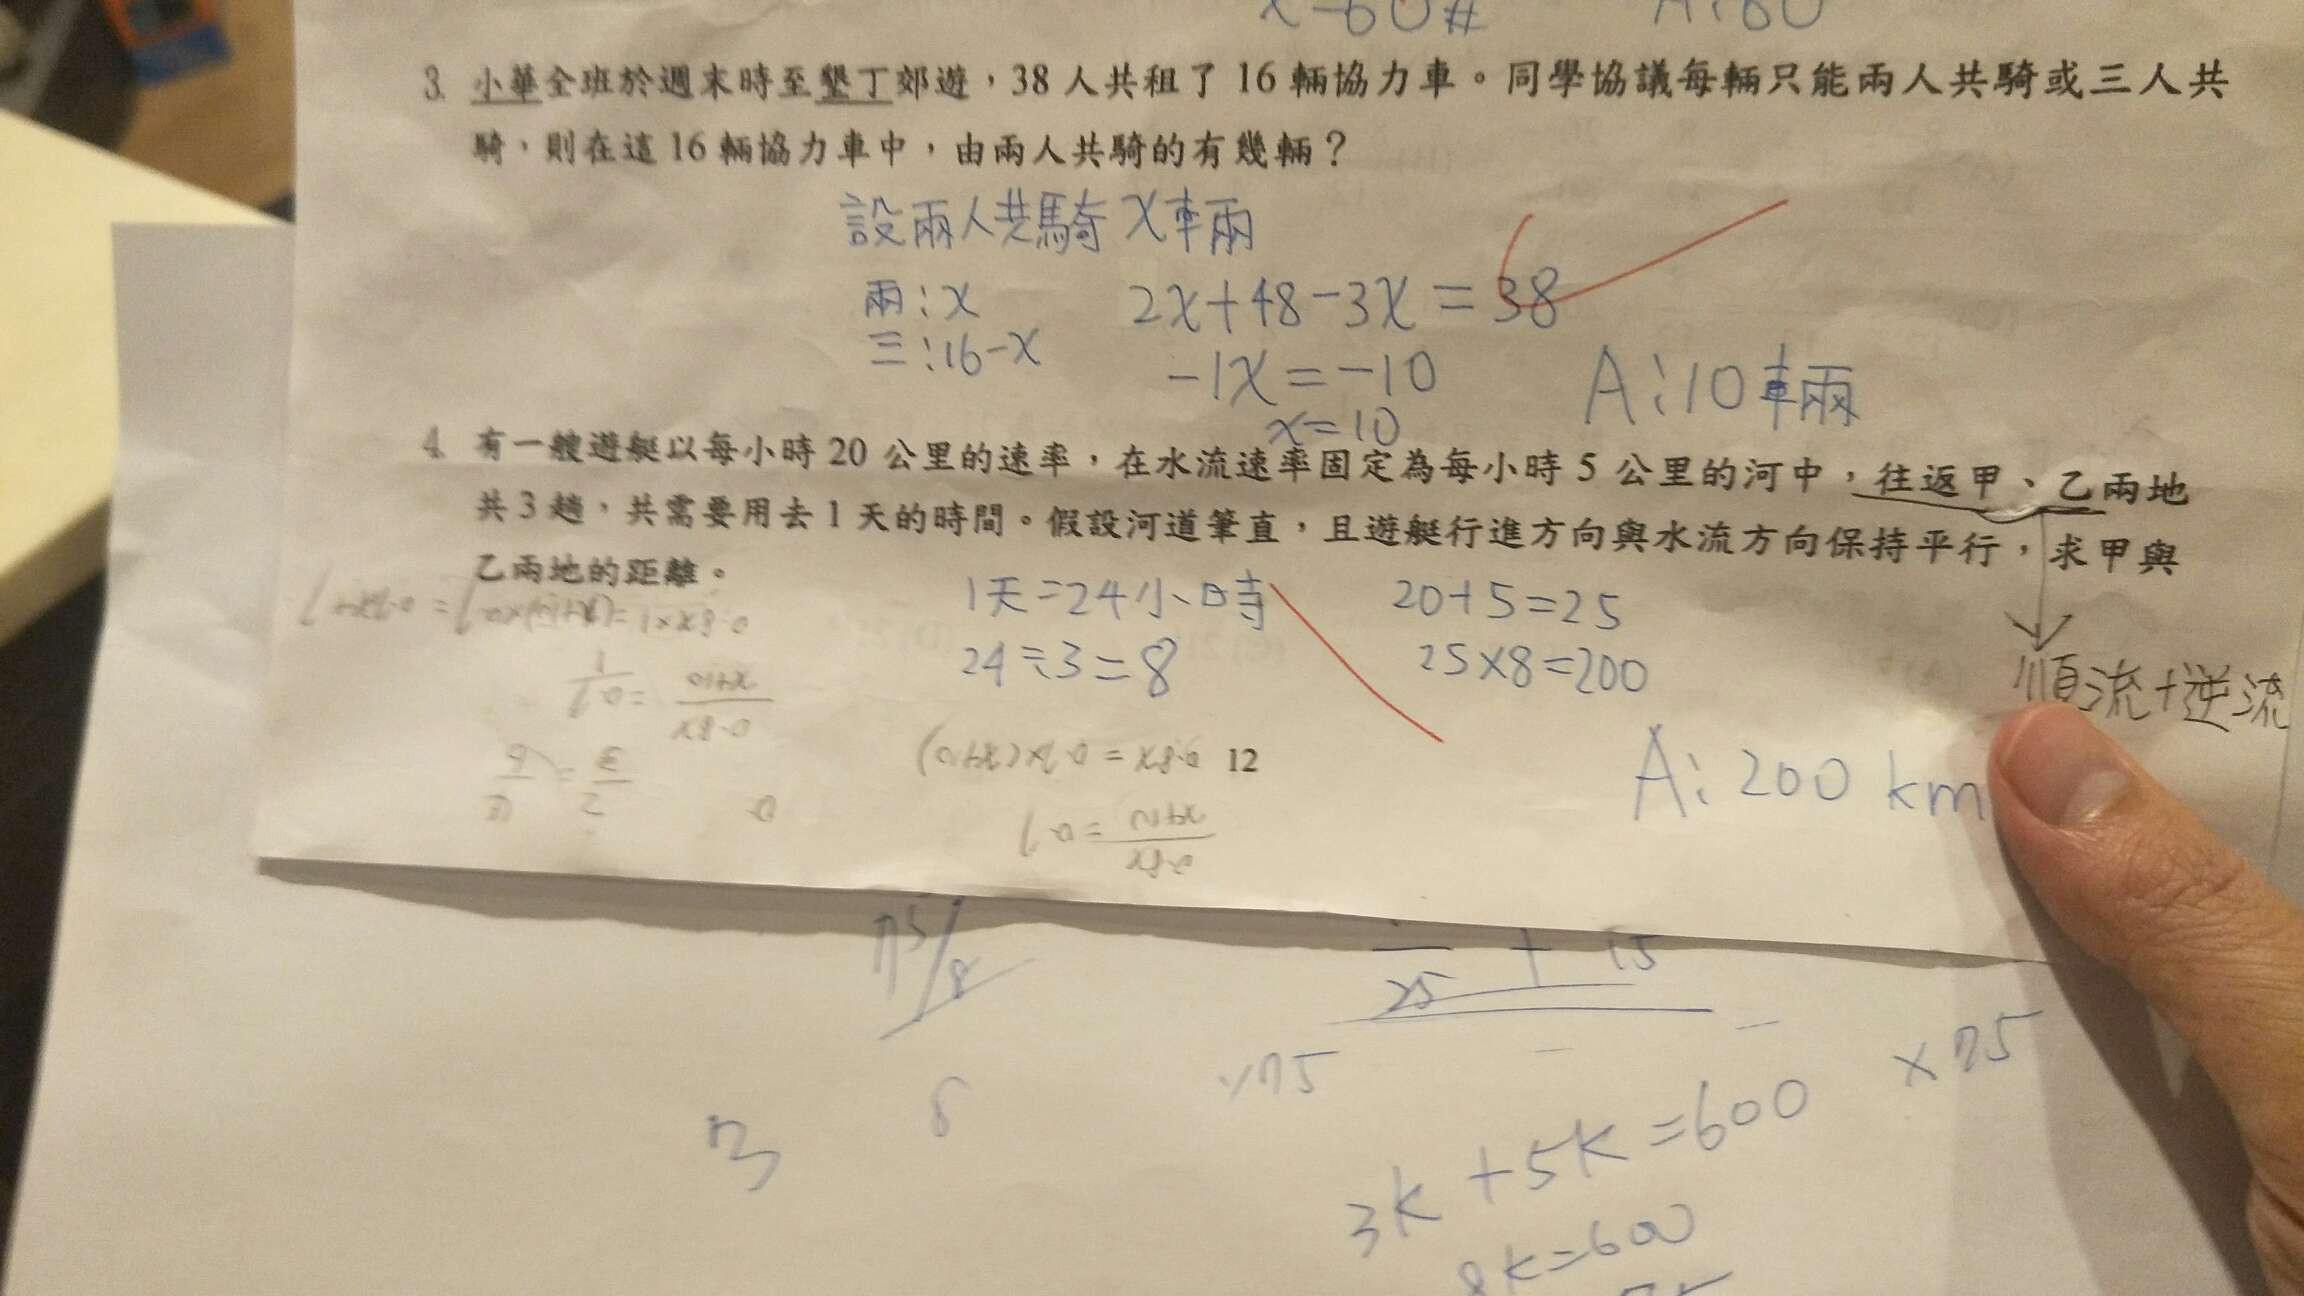 x=60# A:60
3. 小華全班於週末時至墾丁郊遊，38人共租了16輛協力車。同學協議每輛只能兩人共騎或三人共
騎，則在這16輛協力車中，由兩人共騎的有幾輛？
設兩人共騎x輛
兩:x 2x+48-3x=38
三:16-x -1x=-10 A:10輛
x=10
4. 有一艘遊艇以每小時20公里的速率，在水流速率固定為每小時5公里的河中，往返甲、乙兩地
共3趟，共需要用去1天的時間。假設河道筆直，且遊艇行進方向與水流方向保持平行，求甲與
乙兩地的距離。
1天=24小時 20+5=25
24÷3=8 25×8=200
順流+逆流
A:200 km
12
75/8
25 + 15
×75 ×75
3 8
3k+5k=600
8k=600